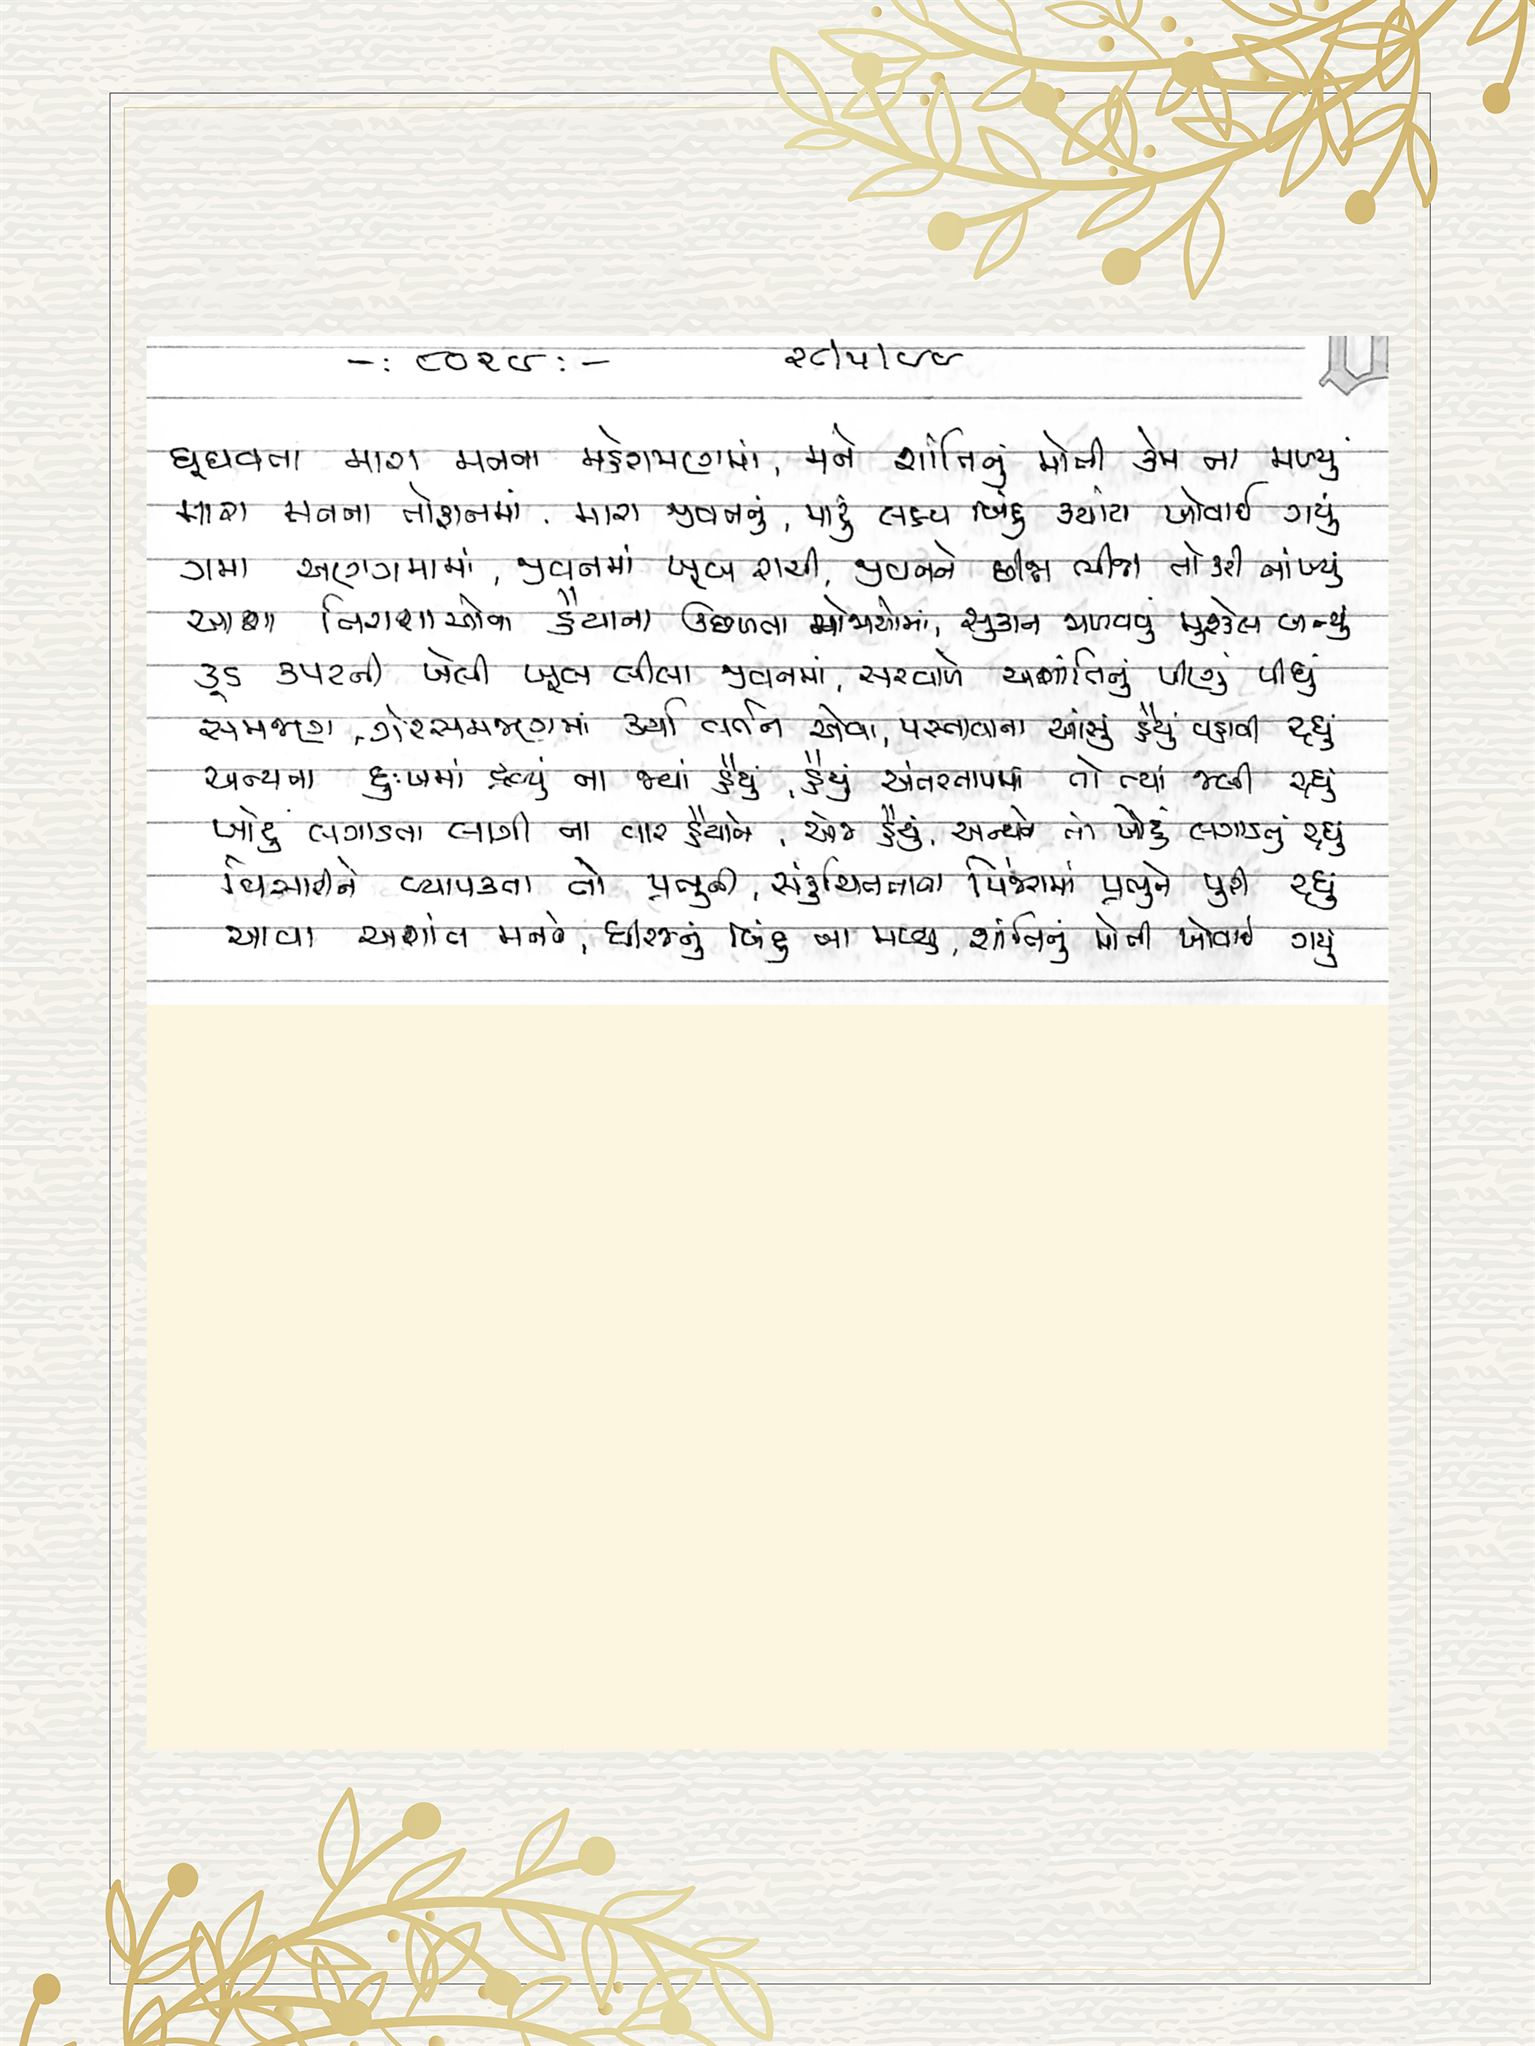 -: ૮૦૨૯ :- ૨૮/૫/૯૯
ઘૂઘવતા મારા મનના મહેરામણમાં, મને શાંતિનું મોતી કેમ ના મળ્યું
મારા મનના તોફાનમાં. મારા જીવનનું, મારું લક્ષ્ય બિંદુ ક્યાંટા ખોવાઈ ગયું
ગમા અણગમામાં, જીવનમાં ખૂબ રાચી, જીવનને છીન્ન ભીન્ન તો કરી નાંખ્યું
આશા નિરાશાઓના હૈયાના ઉછળતા મોજાઓમાં, સુકાન મળવવું મુશ્કેલ બન્યું
કૂડ કપટની ખેલી ખૂબ લીલા જીવનમાં, સરવાળે અશાંતિનું પીણું પીધું
સમજણ, ગેરસમજણમાં કર્યા વર્તન એવા, પસ્તાવાના આંસું હૈયું વહાવી રહ્યું
અન્યના દુઃખમાં દ્રવ્યું ના જ્યાં હૈયું, હૈયું અંતરતાપમાં તો ત્યાં જલી રહ્યું
ખોટું લગાડતા લાગી ના વાર હૈયાને, એજ હૈયું, અન્યને તો ખોટું લગાડતું રહ્યું
વિસારીને વ્યાપકતા તો પ્રભુની, સંકુચિતતાના પિંજરામાં પ્રભુને પુરી રહ્યું
આવા અશાંત મનને, ધીરજનું બિંદુ ના મળ્યું, શાંતિનું મોતી ખોવાઈ ગયું